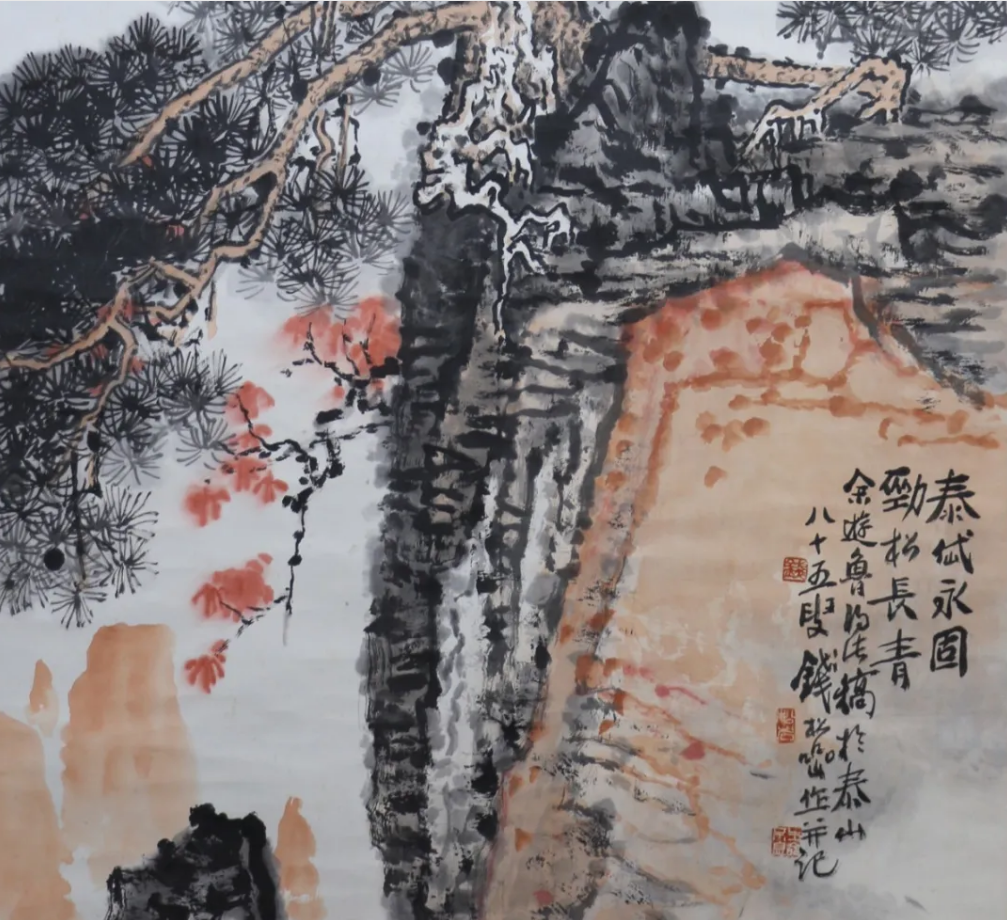 泰岱永固
勁松長青
余遊魯得此稿於泰山
八十五叟錢松喦作并記